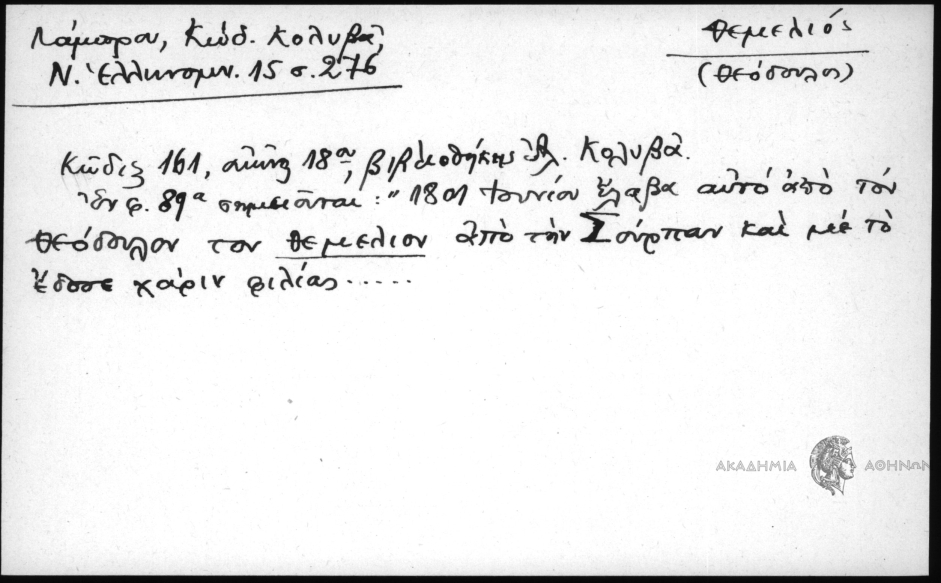 Λάμπρου, Κώδ. Κολυβᾶ,
Ν. Ἑλληνομν. 15 σ. 276
Θεμελιός
(Θεόδουλος)
Κῶδιξ 161, αἰῶνος 18ου, βιβλιοθήκης Ἀλ. Κολυβᾶ.
Ἐν φ. 89α σημειοῦται: " 1801 Ἰουνίου ἔλαβα αὐτό ἀπὸ τόν
Θεόδουλον τον Θεμελιον ἀπὸ τὴν Σούρπαν καὶ μὲ τὸ
ἔδοσε χάριν φιλίας......
ΑΚΑΔΗΜΙΑ ΑΘΗΝΩΝ